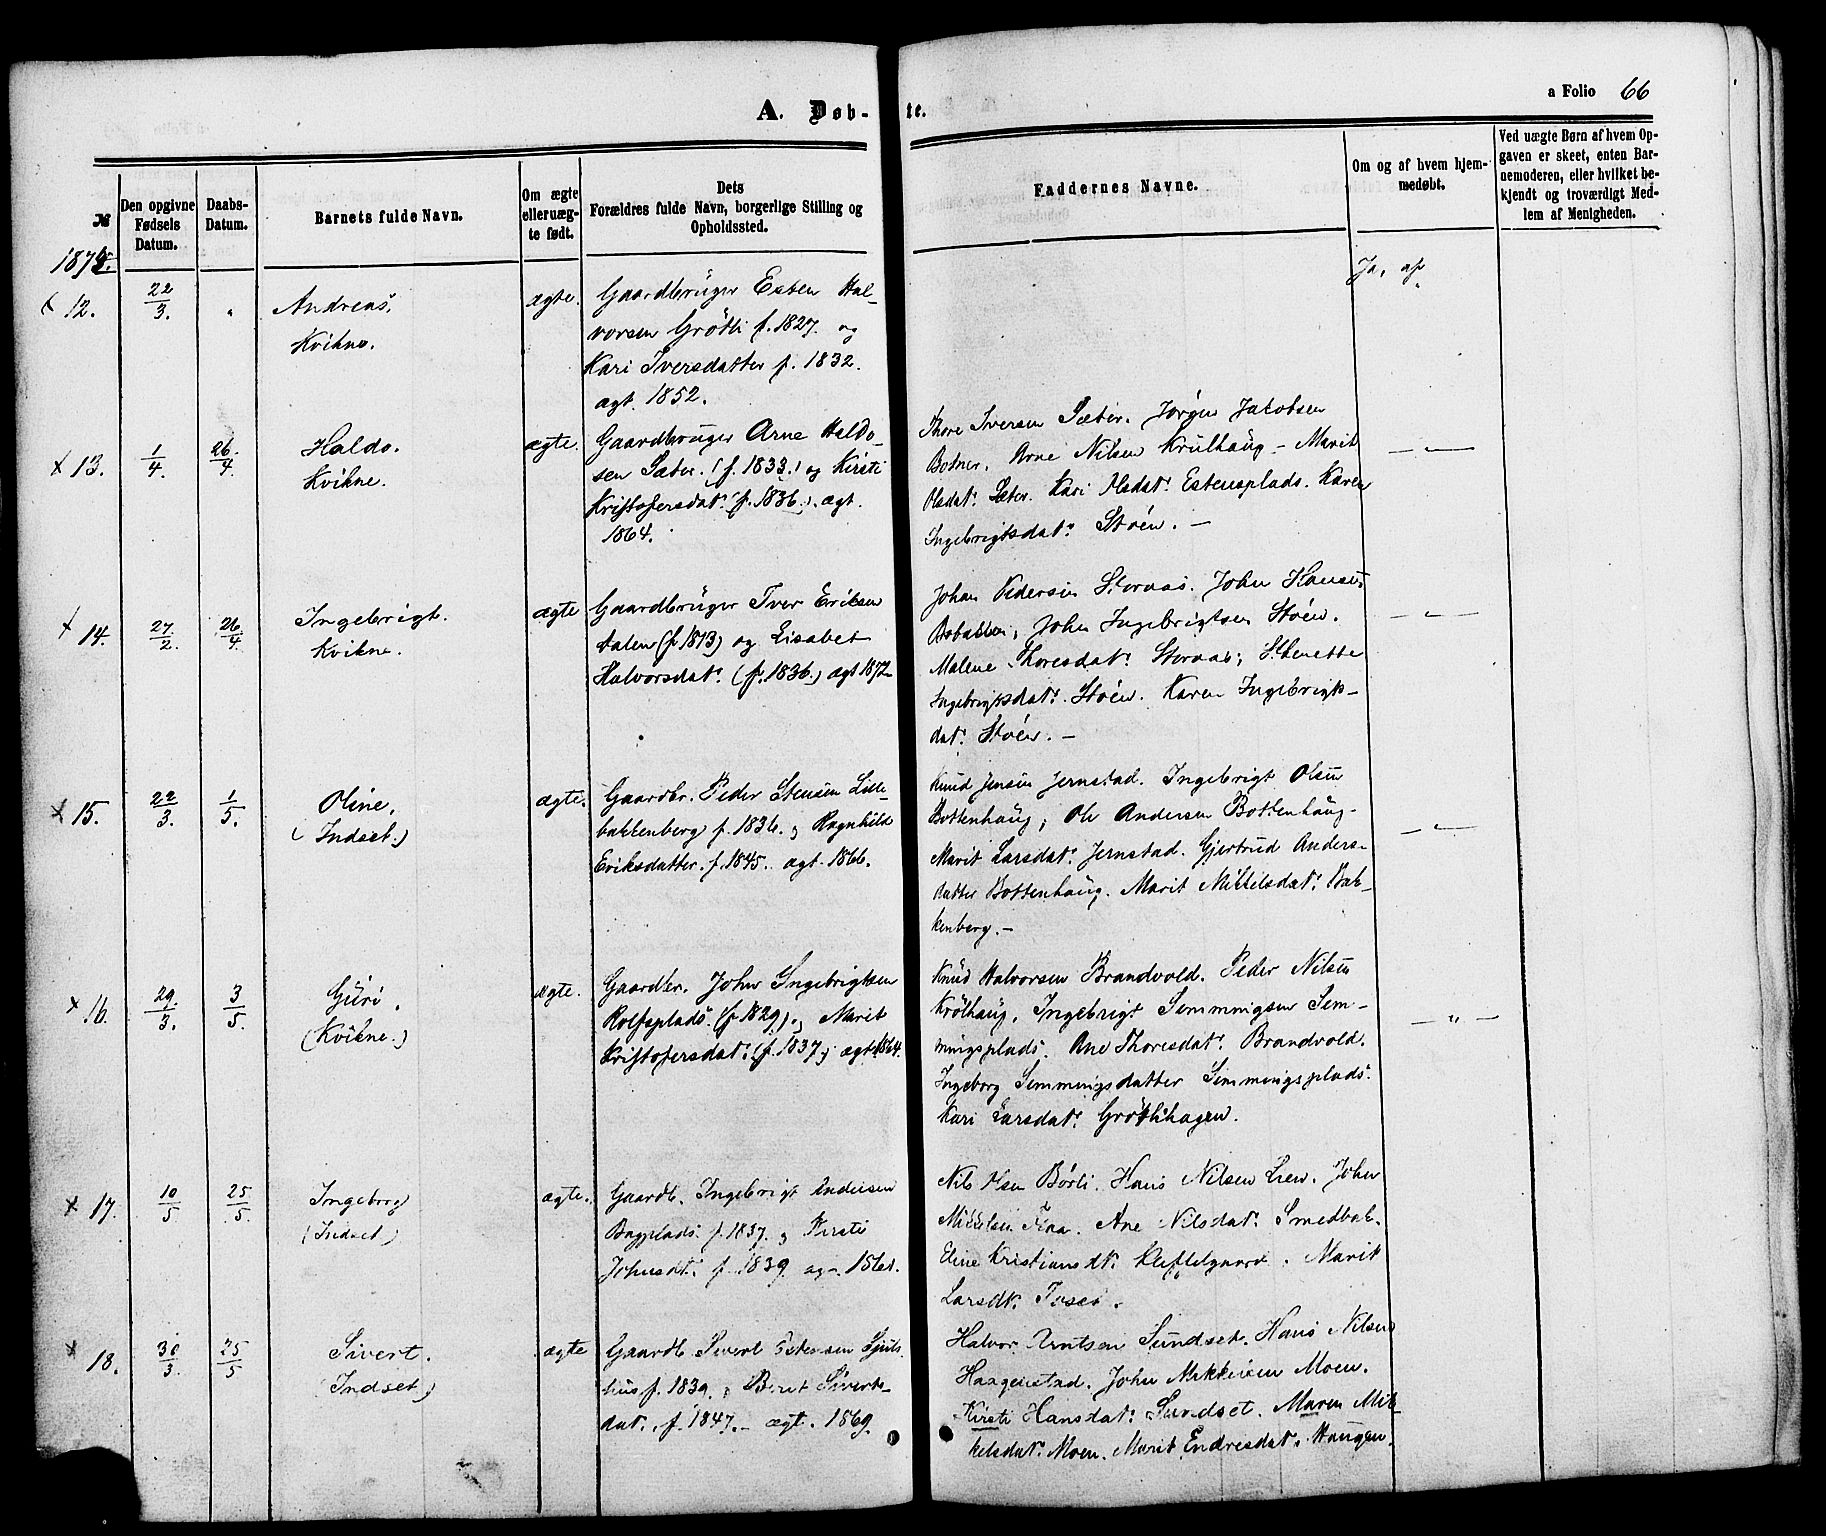 a Folio 66
A. Døb-
te.
№
Den opgivne
Fødsels
Datum.
Daabs-
Datum.
Barnets fulde Navn.
Om ægte
elleruæg-
te født.
Dets
Forældres fulde Navn, borgerlige Stilling og
Opholdssted.
Faddernes Navne.
Om og af hvem hjem-
medøbt.
Ved uægte Børn af hvem Op-
gaven er skeet, enten Bar-
nemoderen, eller hvilket be-
kjendt og troværdigt Med-
lem af Menigheden.
1875.
x 12.
22/3.
"
Andreas.
Kvikne.
ægte.
Gaardbruger Esten Hal-
vorsen Grøtli f. 1827. og
Kari Iversdatter f. 1832.
ægt. 1852.
Ja, af
x 13.
1/4.
26./4.
Haldo.
Kvikne.
ægte.
Gaardbruger Arne Haldo-
sen Sæter. (f. 1833.) og Kirsti
Kristofersdat: (f. 1836.). ægt.
1864.
Thore Iversen Sæter. Jørgen Jakobsen
Botner. Arne Nilsen Krulhaug - Marit
Olsdat: Sæter. Kari Olsdat: Estensplads. Karen
Ingebrigtsdat: Støen. -
— " —
x 14.
27/2.
26/4.
Ingebrigt.
Kvikne.
ægte
Gaardbruger Iver Eriksen
Dalen (f. 1813) og Lisabet
Halvorsdat: (f. 1836.) ægt 1872
Johan Pedersen Storaas. John Hansen
John Ingebrigtsen Støen.
Malene Thoresdat: Storaas;
Ingebrigtsdat: Støen. Karen Ingebrigts-
dat: Støen. -
— " —
x 15.
22/3.
1/5.
Oline.
(Indset.)
ægte.
Gaardbr. Peder Stensen Lille-
bakkenberg f. 1836. og Ragnhild
Eriksdatter. f. 1845. ægt. 1866.
Knud Jensen Jernstad. Ingebrigt Olsen
Bottenhaug; Ole Andersen Bottenhaug-
Marit Larsdat: Jernstad. Gjertrud Anders-
datter Bottenhaug. Marit Mikkelsdat: Bak-
kenberg. -
— " —
x 16.
29./3.
3/5.
Guri.
(Kvikne.)
ægte.
Gaardbr. John Ingebrigtsen
Rolfsplads. (f. 1829). og Marit
Kristofersdat: (f. 1837.) ægt. 1864.
Knud Halvorsen Brandvold. Peder Nilsen
Krølhaug. Ingebrigt Semmingsen Sem-
mingsplads. Ane Thoresdat: Brandvold.
Ingeborg Semmingsdatter Simmingsplads.
Kari Larsdat: Grøtlihagen.
— " —
x 17.
10/5
25/5.
Ingeborg
(Indset)
ægte.
Gaardb. Ingebrigt Andersen
Bagplads. f. 1837. og Kirsti
Johnsdt: f. 1839
Nils Olsen Børli. Hans Nilsen Lien. John
Mikkelsen Floa. Ane Nilsdat: Smedbak.
Eline Kristiansdt: Kleftelgaard. Marit
Larsdt: Toset.
x 18.
30/3.
25/5
Sivert.
(Indset)
ægte
Gaardb. Sivert Estensen Sjuls-
hus f. 1839. og Beret Siverts-
dat. f. 1847. - ægt. 1869.
Halvor Arntsen Sundset. Hans Nilsen
Haagenstad. John Mikkelsen Moen.
Kirsti Hansdat: Sundset. Maren Mik-
kelsdat: Moen. Marit Endresdat: Haugen.